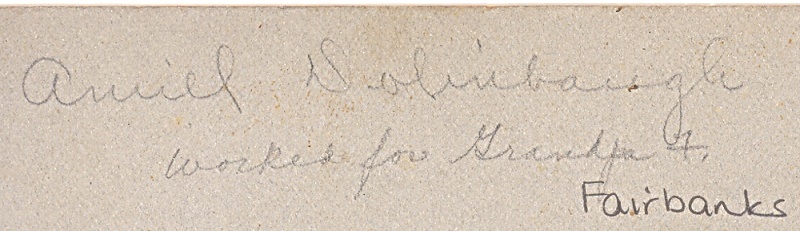 Amiel Dolinbaugh
Worked for Grandpa F.
Fairbanks